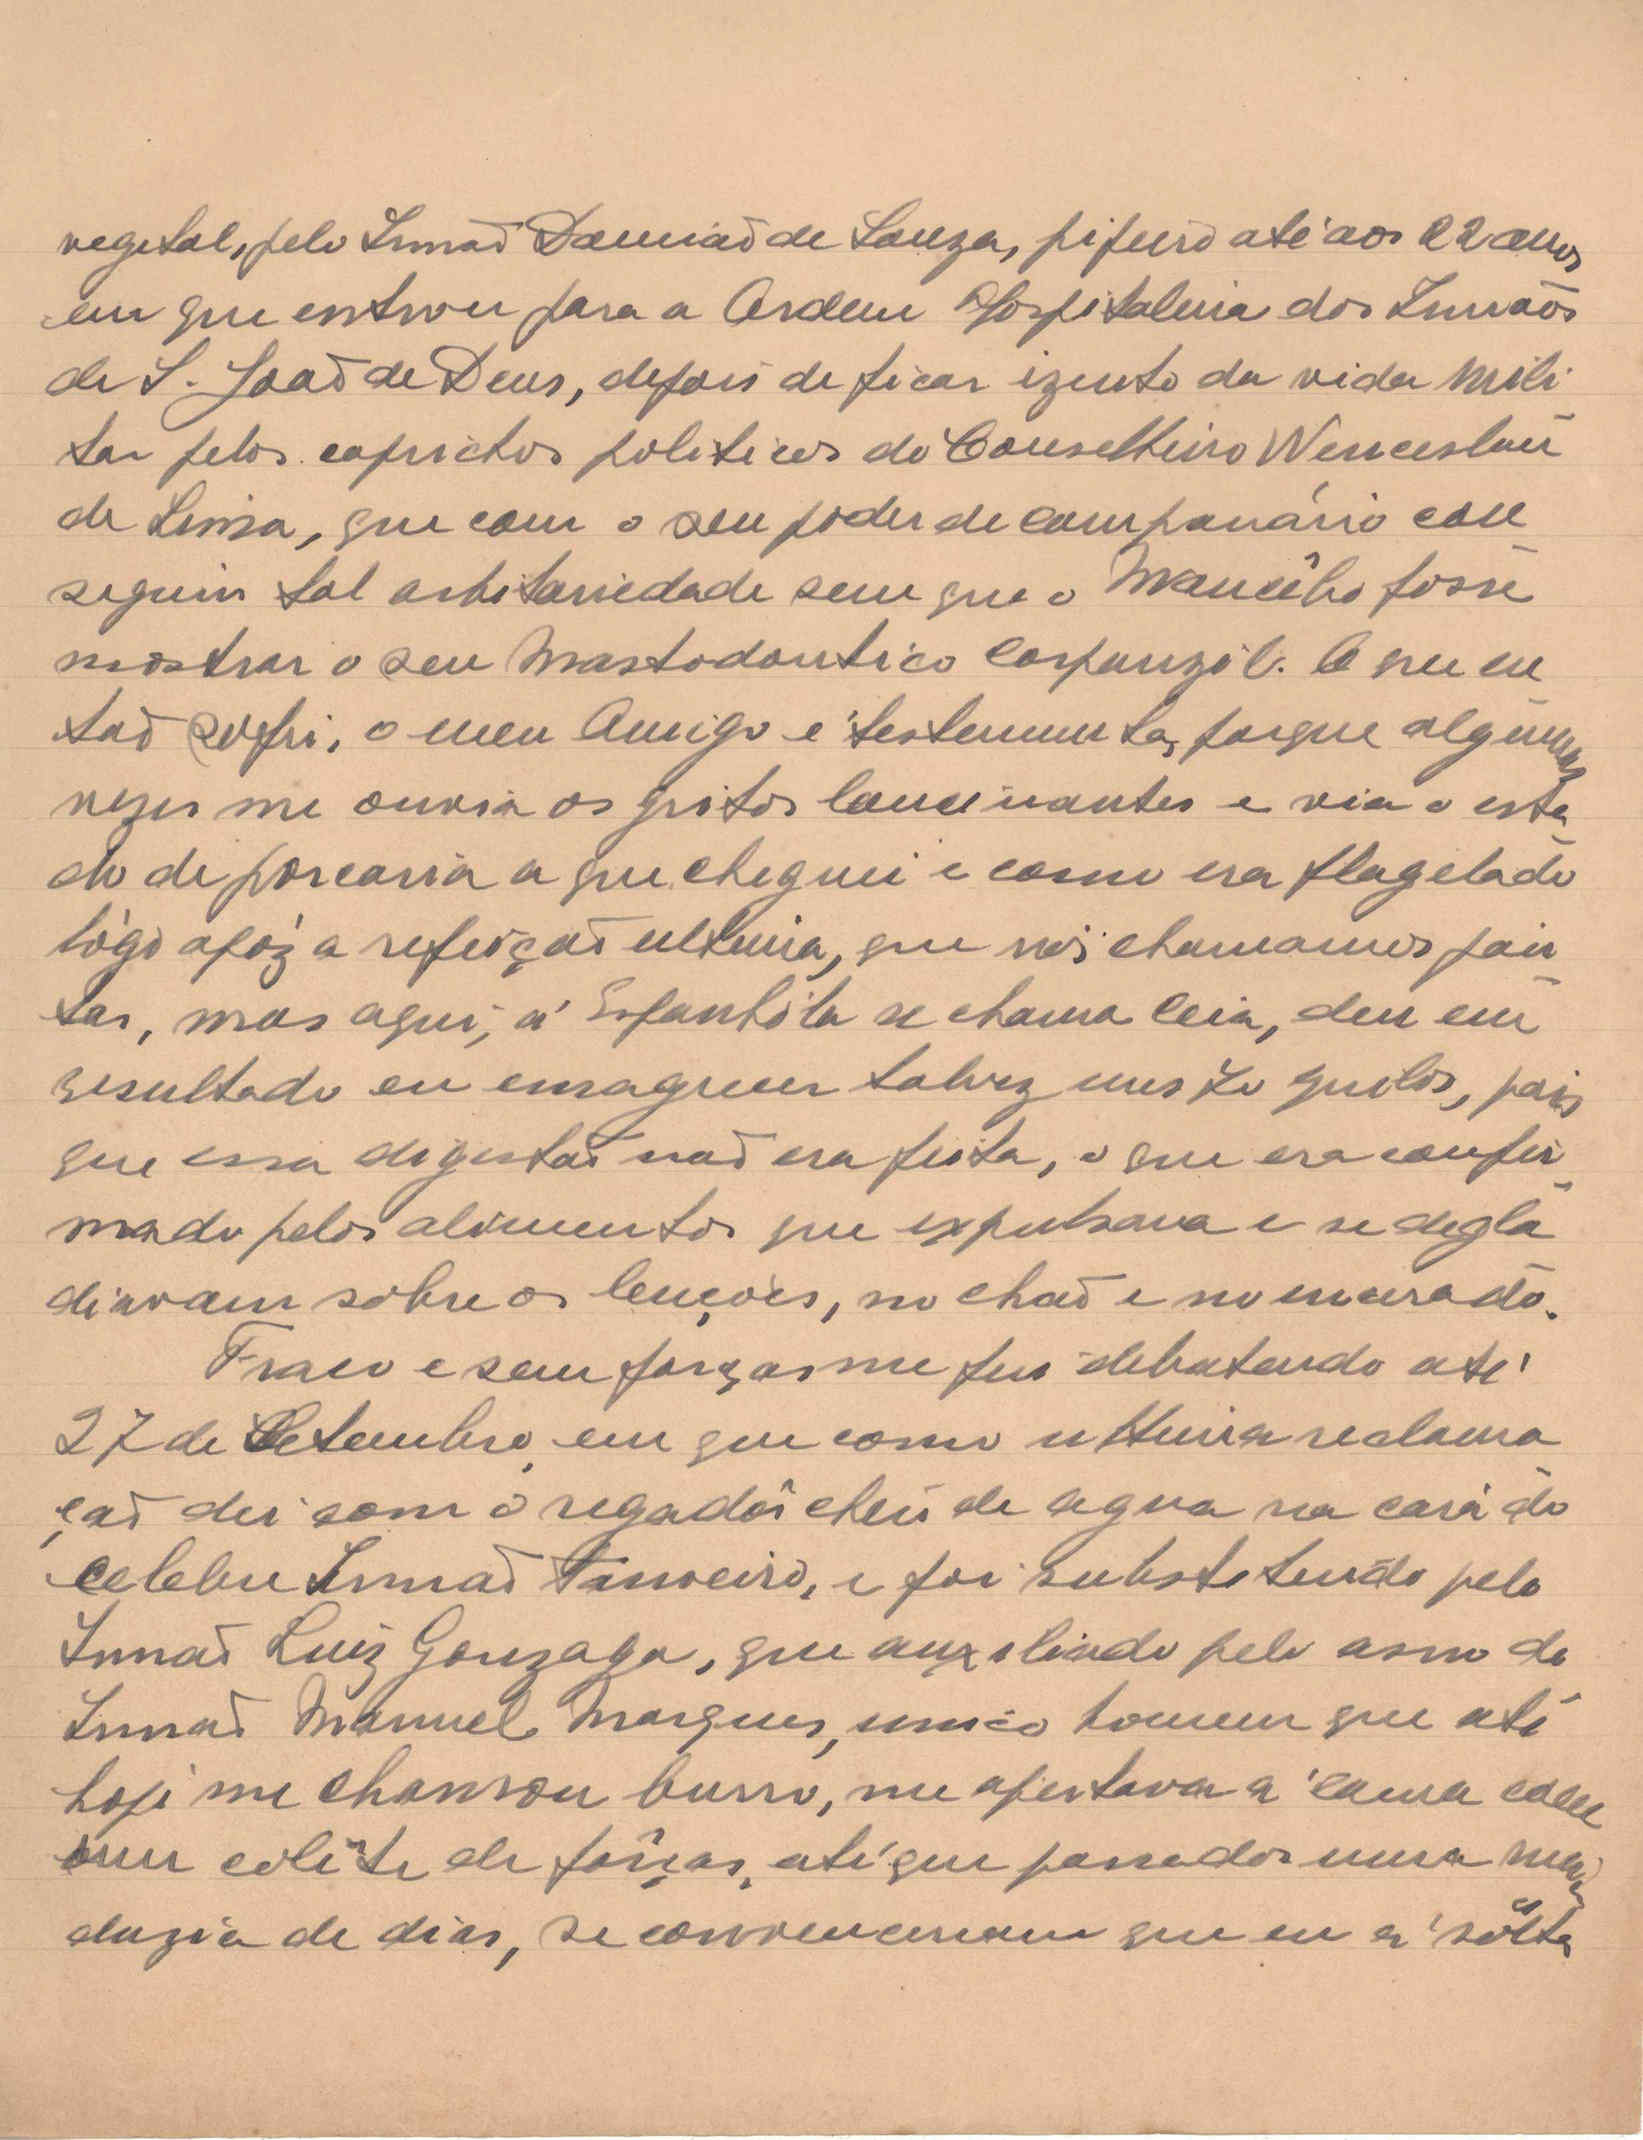 vegetal, pelo Irmaõ Damiaõ de Souza, pipeiro até aos 22 anos
em que entrou para a Ordem Hospitaleira dos Irmaõs
de S. Joaõ de Deus, depois de ficar izento da vida mili
tar pelos caprichos politicos do Conselheiro Wenceslau
de Lima, que com o seu poder de campanário con
seguiu tal arbitariedade sem que o Mancêbo fosse
mostrar o seu Mastodontico Corpanzil. O que en
taõ sofri, o meu Amigo é testemunha, porque algumas
vezes me ouvia os gritos lancinantes e via o esta
do de porcaria a que cheguei e como era flagelado
lógo apóz a refeiçaõ ultima, que nós chamamos jan
tar, mas aqui, á Espanhóla se chama Ceia, deu em
resultado eu emagrecer talvez uns 20 quilos, pois
que essa digestaõ naõ era feita, o que era confir
mado pelos alimentos que expulsava e se degla
diavam sobre os lençoes, no chaõ e no encerado.
Fraco e sem forças me fui debatendo até
27 de Setembro, em que como ultima reclama
çaõ dei com o regadôr cheio de agua na cara do
celebre Irmaõ Tanoeiro, e foi substituido pelo
Irmaõ Luiz Gonzaga, que auxiliado pelo asno do
Irmaõ Manuel Marques, unico homem que até
hoje me chamou burro, me apertava á cama com
um colête de fôrças, até que passados uma meia
duzia de dias, se convenceram que eu á sôlta